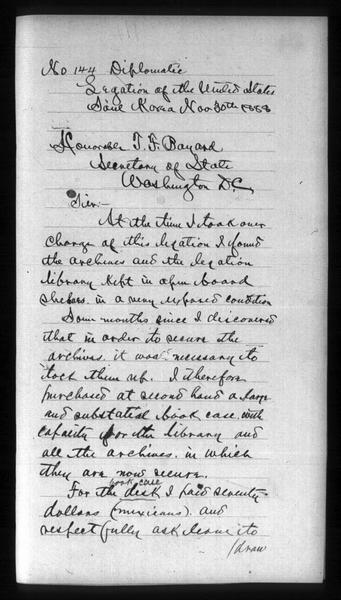 No 144 Diplomatic
Legation of the United States
Söul Korea Nov 30th 1888
Honorable T. F. Bayard
Secretary of State
Washington D.C,
Sir:-
At the time I took over
charge of this legation I found
the archives and the legation
library kept in open board
shelves in a very exposed condition
Some months since I discovered
that in order to secure the
archives it was necessary to
lock them up. I therefore
purchased at second hand a large
and substatial book case with
capacity for the library and
all the archives. in which
they are now secure.
book case
For the desk I paid seventy
dollars (mexicans). and
respectfully ask leave to
/draw